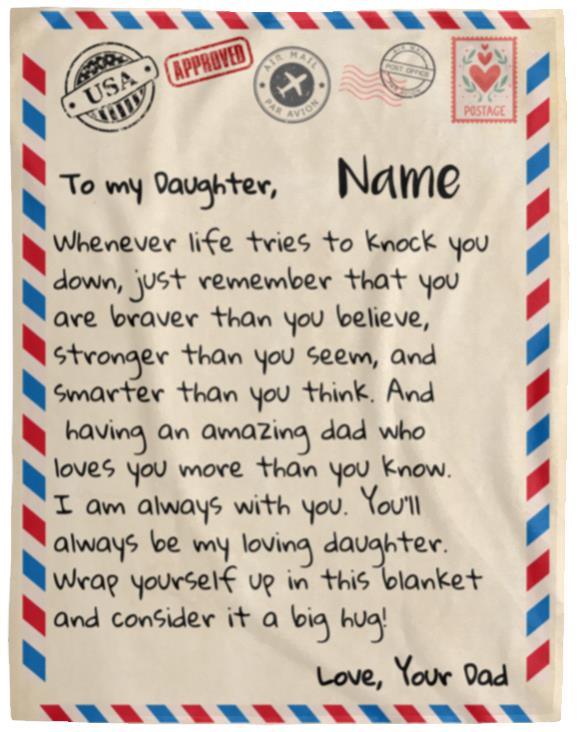 USA
APPROVED
AIR MAIL
PAR AVION
AIR MAIL
POST OFFICE
POSTAGE
To my Daughter, Name
Whenever life tries to knock you
down, just remember that you
are braver than you believe,
stronger than you seem, and
smarter than you think. And
having an amazing dad who
loves you more than you know.
I am always with you. You'll
always be my loving daughter.
Wrap yourself up in this blanket
and consider it a big hug!
Love, Your Dad